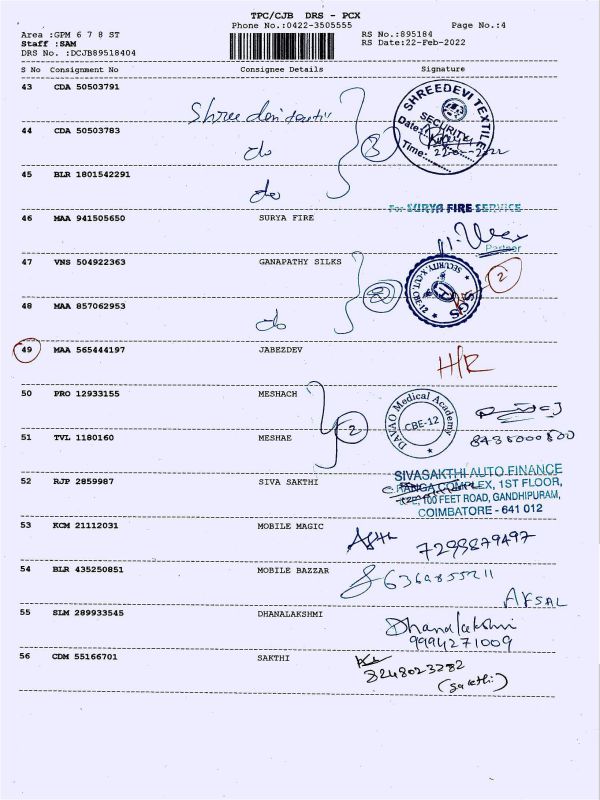 TPC/CJB DRS - PCX
Phone No.:0422-3505555 Page No.:4
Area :GPM 6 7 8 ST RS No.:895184
Staff :SAM RS Date:22-Feb-2022
DRS No. :DCJB89518404
S No Consignment No Consignee Details Signature
43 CDA 50503791
SHREEDEVI TEXTILE
SECURITY
Date:
Time: 22-02-2022
Shree devi
44 CDA 50503783
do
3
45 BLR 1801542291
do
For SURYA FIRE SERVICE
46 MAA 941505650 SURYA FIRE
Partner
47 VNS 504922363 GANAPATHY SILKS
2
SGS
48 MAA 857062953
do
49 MAA 565444197 JABEZDEV
H/R
50 PRO 12933155 MESHACH
DAVAO Medical Academy
CBE-12
2
51 TVL 1180160 MESHAE
52 RJP 2859987 SIVA SAKTHI
SIVASAKTHI AUTO FINANCE
RANGA COMPLEX, 1ST FLOOR,
100 FEET ROAD, GANDHIPURAM,
COIMBATORE - 641 012
53 KCM 21112031 MOBILE MAGIC
7299879497
54 BLR 435250851 MOBILE BAZZAR
AFSAL
55 SLM 289933545 DHANALAKSHMI
Dhanalakshmi
9994271009
56 CDM 55166701 SAKTHI
8248023282
(Sakthi)